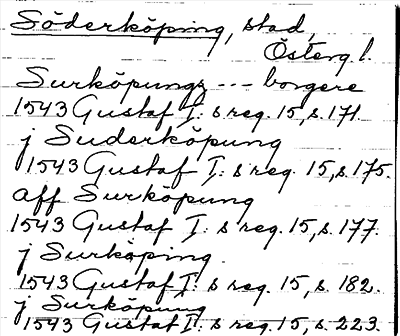 Söderköping, stad,
Österg l.
Surköpungs --- borgere
1543 Gustaf I: s reg. 15, s. 171.
j Suderköpung
1543 Gustaf I: s reg. 15, s. 175.
aff Surköpung
1543 Gustaf I: s reg. 15, s. 177.
j Surköping.
1543 Gustaf I: s reg. 15, s. 182.
j Surköpung
1543 Gustaf I: s reg. 15, s. 223.